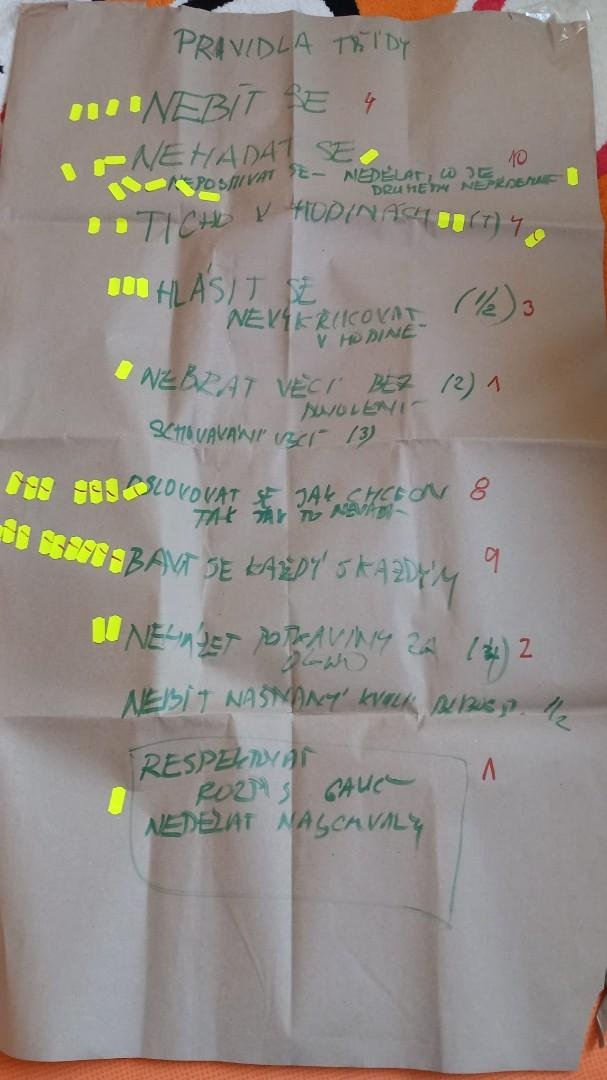 PRAVIDLA TŘÍDY
NEBÍT SE 4
NEHÁDAT SE 10
NEPOSMÍVAT SE - NEDĚLAT, CO JE
DRUHÉMU NEPŘÍJEMNÉ
TICHO V HODINÁCH (T) 4
HLÁSIT SE (1/2) 3
NEVYKŘIKOVAT
V HODINĚ
NEBRAT VĚCI BEZ (2) 1
DOVOLENÍ
SCHOVÁVÁNÍ VĚCÍ (3)
OSLOVOVAT SE JAK CHCEOU 8
TAK JAK TO NEVADÍ
BAVIT SE KAŽDÝ S KAŽDÝM 9
NEHÁZET POTRAVINY ZA 2
NEBÍT NAŠTVANÝ KVŮLI 1/2
RESPEKTOVAT 1
GAUČ
NEDĚLAT NASCHVÁLY